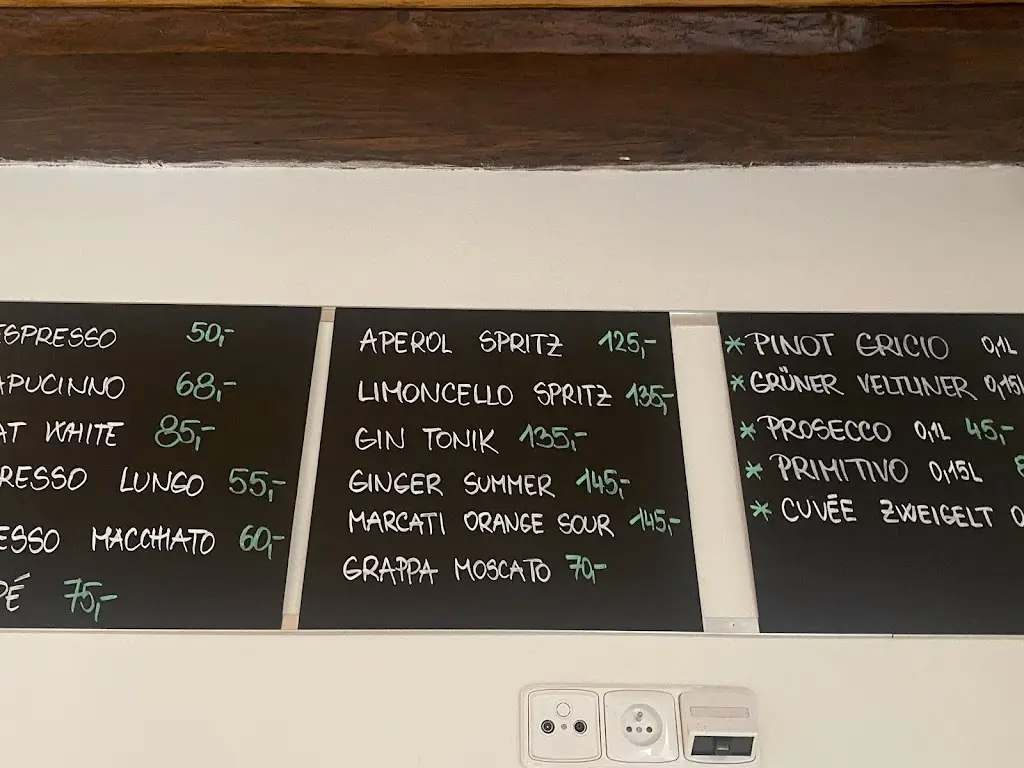 ESPRESSO 50,-
APUCINNO 68,-
AT WHITE 85,-
RESSO LUNGO 55,-
ESSO MACCHIATO 60,-
PÉ 75,-
APEROL SPRITZ 125,-
LIMONCELLO SPRITZ 135,-
GIN TONIK 135,-
GINGER SUMMER 145,-
MARCATI ORANGE SOUR 145,-
GRAPPA MOSCATO 70,-
* PINOT GRIGIO 0,1L
* GRÜNER VELTLINER 0,15L
* PROSECCO 0,1L 45,-
* PRIMITIVO 0,15L
* CUVÉE ZWEIGELT